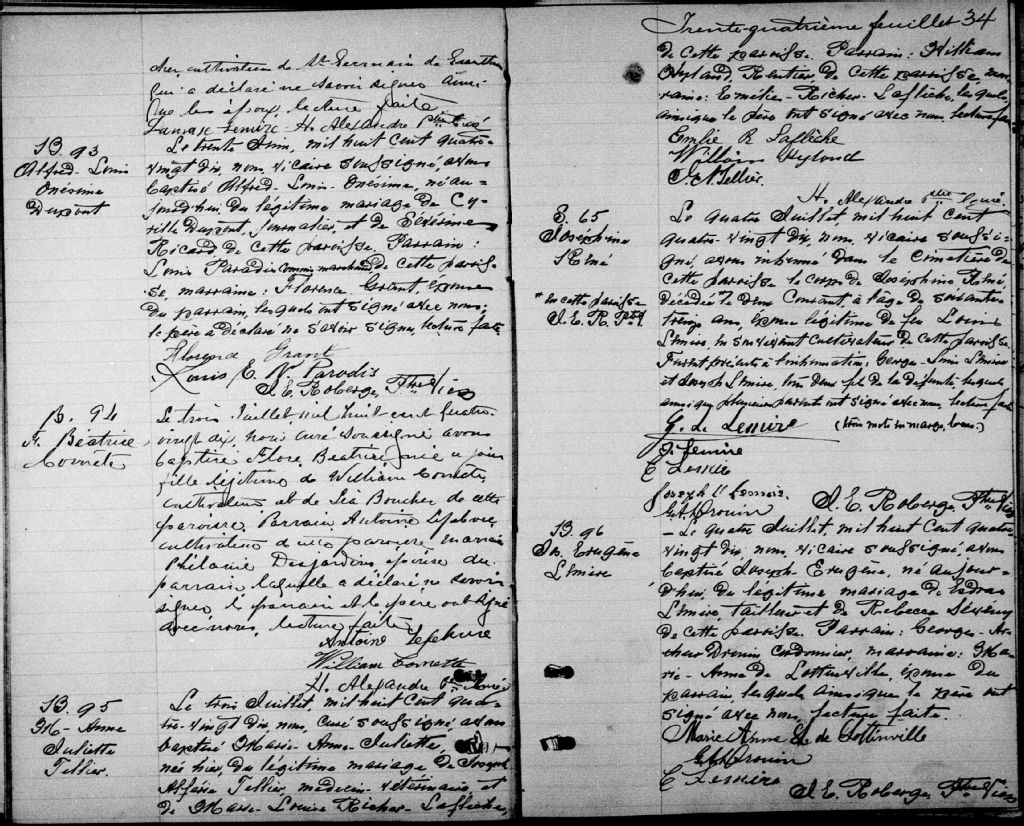 cher, cultivateur de St Germain de
qui a déclaré ne savoir signer ainsi
que les époux, lecture faite
Lemire H. Alexandre Ptre Curé
B. 93
Alfred-Louis
Onésime
Dupont
Le trente Juin, mil huit cent quatre-
vingt dix, nous, vicaire soussigné, avons
baptisé Alfred-Louis-Onésime, né au-
jourd'hui, du légitime mariage de Cy-
rille Dupont, journalier, et de Exérime
Ricard de cette paroisse. Parrain:
Louis Paradis commis marchand de cette parois-
se, marraine: Florence Grant, épouse
du parrain, lesquels ont signé avec nous;
le père a déclaré ne savoir signer, lecture faite
Florence Grant
Louis E. N. Paradis
J. E. Roberge, Ptre Vicr
B. 94
F. Béatrice
Le trois Juillet, mil huit cent quatre-
vingt dix, nous curé soussigné avons
baptisé Flore, Béatrice, née ce jour
fille légitime de William
cultivateur et de Léa Boucher de cette
paroisse, Parrain, Antoine Lefebvre,
cultivateur de cette paroisse, marraine
Philanie Desjardins, épouse du
parrain, laquelle a déclaré ne savoir
signer le parrain et le père ont signé
avec nous, lecture faite
Antoine Lefebvre
William
H. Alexandre Ptre Curé
B. 95
M-Anne
Juliette
Tellier.
Le trois Juillet, mil huit cent qua-
tre-vingt dix, nous, curé soussigné, avons
baptisé Marie-Anne-Juliette,
née hier, du légitime mariage de Joseph
Tellier, médecin-vétérinaire, et
de Marie-Louise Richer-Laflèche,
Trente-quatrième feuillet 34
de cette paroisse. Parrain: William
Hyland, Rentier, de cette paroisse, mar-
raine: Emélie-Richer-Laflèche, lesquels
ainsi que le père ont signé avec nous, lecture faite
Emilie R Laflèche
William Hyland
J. A. Tellier.
H. Alexandre Ptre Curé.
S. 65
Joséphine
Réné
* en cette paroisse
J. E. R. Ptre V.
Le quatre Juillet, mil huit cent
quatre-vingt dix, nous, vicaire soussi-
gné, avons inhumé dans le cimetière de
cette paroisse le corps de Joséphine Réné,
décédée * le deux courant à l'âge de soixante
treize ans, épouse légitime de feu Louis
Lemire, en son vivant cultivateur de cette paroisse.
Furent présents à l'inhumation: George-Louis Lemire
et Joseph Lemire, tous deux fils de la défunte, lesquels
ainsi que plusieurs parents ont signé avec nous, lecture faite
G. L. Lemire (trois mots en marge, bons.)
J. Lemire
E Lemire
Joseph Lemire.
G. A. Drouin J. E. Roberge, Ptre Vicr
B. 96
Jos. Eugène
Lemire
Le quatre Juillet, mil huit cent quatre-
vingt dix, nous, vicaire soussigné, avons
baptisé Joseph Eugène, né aujour-
d'hui, du légitime mariage de Esdras
Lemire, tailleur et de Rébecca Sévigny
de cette paroisse. Parrain: Georges-Ar-
thur Drouin cordonnier, marraine: Ma-
rie-Anne de Lottinville, épouse du
parrain, lesquels ainsi que le père ont
signé avec nous, lecture faite.
Marie Anne L. de Lottinville
G. A. Drouin
E Lemire
J. E. Roberge, Ptre Vicr